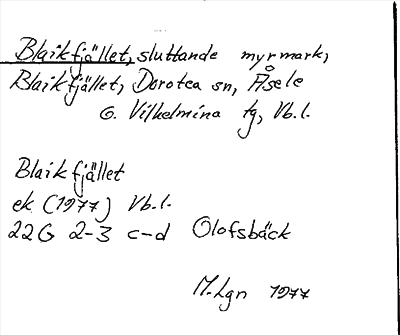 Blaikfjället, sluttande myrmark,
Blaikfjället, Dorotea sn, Åsele
o. Vilhelmina tg, Vb.l.
Blaikfjället
ek (1977) Vb.l.
22G 2-3 c-d Olofsbäck
M.Lgn 1977